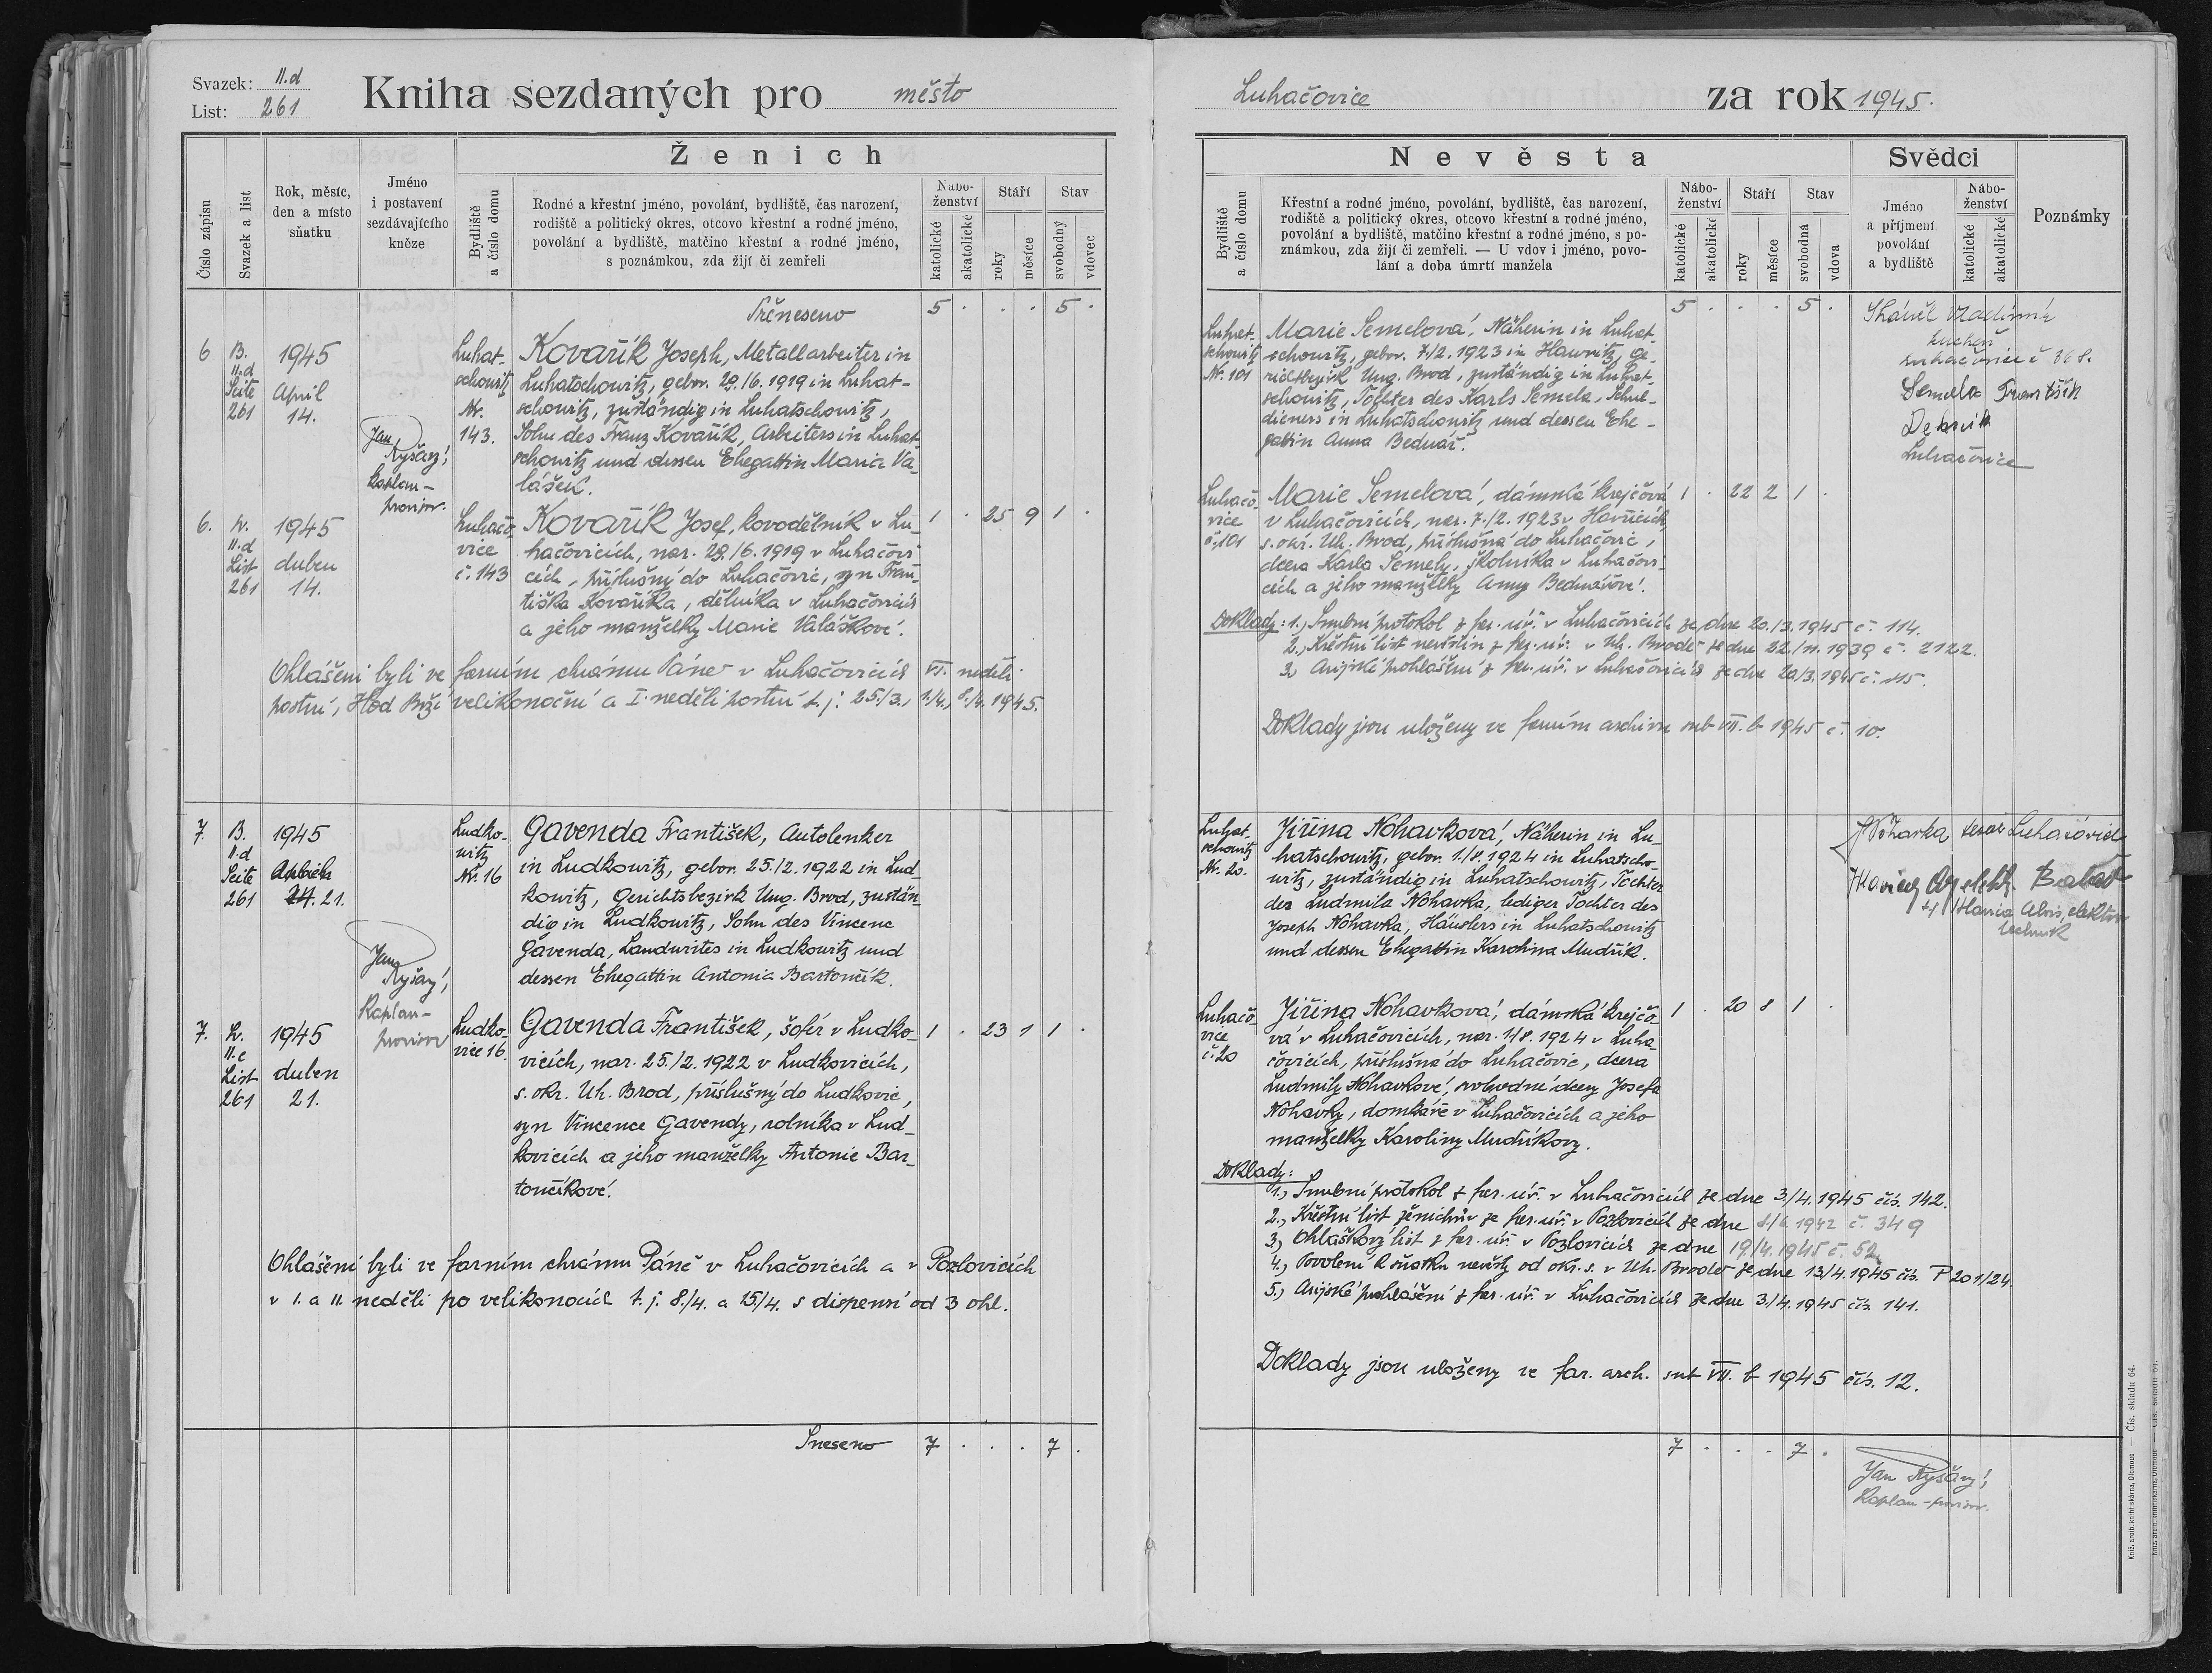 Svazek: II.d
List: 261
Kniha sezdaných pro město
Číslo zápisu
Svazek a list
Rok, měsíc,
den a místo
sňatku
Jméno
i postavení
sezdávajícího
kněze
Ženich
Bydliště
a číslo domu
Rodné a křestní jméno, povolání, bydliště, čas narození,
rodiště a politický okres, otcovo křestní a rodné jméno,
povolání a bydliště, matčino křestní a rodné jméno,
s poznámkou, zda žijí či zemřeli
Nábo-
ženství
katolické
akatolické
Stáří
roky
měsíce
Stav
svobodný
vdovec
Přeneseno 5 . . . 5 .
6 B. II.d Seite 261
1945
April
14.
Jan Ryšavý,
Kaplan-
provisor.
Luhat-
schowitz
Nr.
143.
Kovařík Joseph, Metallarbeiter in
Luhatschowitz, gebor. 29./6. 1919 in Luhat-
schowitz, zuständig in Luhatschowitz,
Sohn des Franz Kovařík, Arbeiters in Luhat-
schowitz und dessen Ehegattin Maria Va-
lášek.
6. Sv. II.d List 261
1945
duben
14.
Luhačo-
vice
č. 143
Kovařík Josef, kovodělník v Lu- 1 . 25 9 1 .
hačovicích, nar. 29./6. 1919 v Luhačovi-
cích, příslušný do Luhačovic, syn Fran-
tiška Kovaříka, dělníka v Luhačovicích
a jeho manželky Marie Valáškové.
Ohlášeni byli ve farním chrámu Páně v Luhačovicích VI. neděli
postní, Hod Boží velikonoční a I. neděli postní t.j. 25./3., 1./4., 8./4. 1945.
7. B. II.d Seite 261
1945
April
21.
Jan Ryšavý,
Kaplan-
provisor
Ludko-
witz
Nr. 16
Gavenda František, Autolenker
in Ludkowitz, gebor. 25./2. 1922 in Lud-
kowitz, Gerichtsbezirk Ung. Brod, zustän-
dig in Ludkowitz, Sohn des Vincenc
Gavenda, Landwirtes in Ludkowitz und
dessen Ehegattin Antonia Bartončík.
7. Sv. II.c List 261
1945
duben
21.
Ludko-
vice 16.
Gavenda František, šofér v Ludko- 1 . 23 1 1 .
vicích, nar. 25./2. 1922 v Ludkovicích,
s. okr. Uh. Brod, příslušný do Ludkovic,
syn Vincence Gavendy, rolníka v Lud-
kovicích a jeho manželky Antonie Bar-
tončíkové.
Ohlášeni byli ve farním chrámu Páně v Luhačovicích a v Pozlovicích
v I. a II. neděli po velikonocích t.j. 8./4. a 15./4. s dispensí od 3 ohl.
Sneseno 7 . . . 7 .
Luhačovice za rok 1945.
Nevěsta
Bydliště
a číslo domu
Křestní a rodné jméno, povolání, bydliště, čas narození,
rodiště a politický okres, otcovo křestní a rodné jméno,
povolání a bydliště, matčino křestní a rodné jméno, s po-
známkou, zda žijí či zemřeli. — U vdov i jméno, povo-
lání a doba úmrtí manžela
Nábo-
ženství
katolické
akatolické
Stáří
roky
měsíce
Stav
svobodná
vdova
Svědci
Jméno
a příjmení
povolání
a bydliště
Nábo-
ženství
katolické
akatolické
Poznámky
5 . . . 5 .
Luhat-
schowitz
Nr. 101
Marie Semelová, Näherin in Luhat-
schowitz, gebor. 7./2. 1923 in Hawritz, Ge-
richtsbezirk Ung. Brod, zuständig in Luhat-
schowitz, Tochter des Karls Semela, Schul-
dieners in Luhatschowitz und dessen Ehe-
gattin Anna Bednář.
Vladimír
Luhačovice č 368.
Semela František
Luhačovice
Luhačo-
vice
č. 101
Marie Semelová, dámská krejčová 1 . 22 2 1 .
v Luhačovicích, nar. 7./2. 1923 v Havřicích,
s. okr. Uh. Brod, příslušná do Luhačovic,
dcera Karla Semely, školníka v Luhačovi-
cích a jeho manželky Anny Bednářové.
Doklady: 1., Snubní protokol z far. úř. v Luhačovicích ze dne 20./3. 1945 č. 114.
2., Křestní list nevěstin z far. úř. v Uh. Brodě ze dne 22./11. 1939 č. 2122.
3., Arijské prohlášení z far. úř. v Luhačovicích ze dne 20/3. 1945 č. 115.
Doklady jsou uloženy ve farním archivu sub VII. b 1945 č. 10.
Luhat-
schowitz
Nr. 20.
Jiřina Nohavková, Näherin in Lu-
hatschowitz, gebor. 1./8. 1924 in Luhatscho-
witz, zuständig in Luhatschowitz, Tochter
der Ludmila Nohavka, lediger Tochter des
Joseph Nohavka, Häuslers in Luhatschowitz
und dessen Ehegattin Karolina Mudřík.
Nohavka Luhačovice
elektro-
technik
Luhačo-
vice
č. 20
Jiřina Nohavková, dámská krejčo- 1 . 20 8 1 .
vá v Luhačovicích, nar. 1./8. 1924 v Luha-
čovicích, příslušná do Luhačovic, dcera
Ludmily Nohavkové, svobodné dcery Josefa
Nohavky, domkáře v Luhačovicích a jeho
manželky Karoliny Mudříkovy.
Doklady:
1., Snubní protokol z far. úř. v Luhačovicích ze dne 3./4. 1945 čís. 142.
2., Křestní list ženichův ze far. úř. v Pozlovicích ze dne 1942 č. 349
3., Ohláškový list z far. úř. v Pozlovicích ze dne 19/4. 1945 č. 52.
4., Povolení k sňatku nevěsty od okr. s. v Uh. Brodě ze dne 13/4. 1945 čís. P 201/24.
5., Arijské prohlášení z far. úř. v Luhačovicích ze dne 3./4. 1945 čís. 141.
Doklady jsou uloženy ve far. arch. sub VII. b 1945 čís. 12.
7 . . . 7 .
Jan Ryšavý,
Kaplan-provisor.
Kniž. arcib. knihtiskárna, Olomouc — Čís. skladu 64.